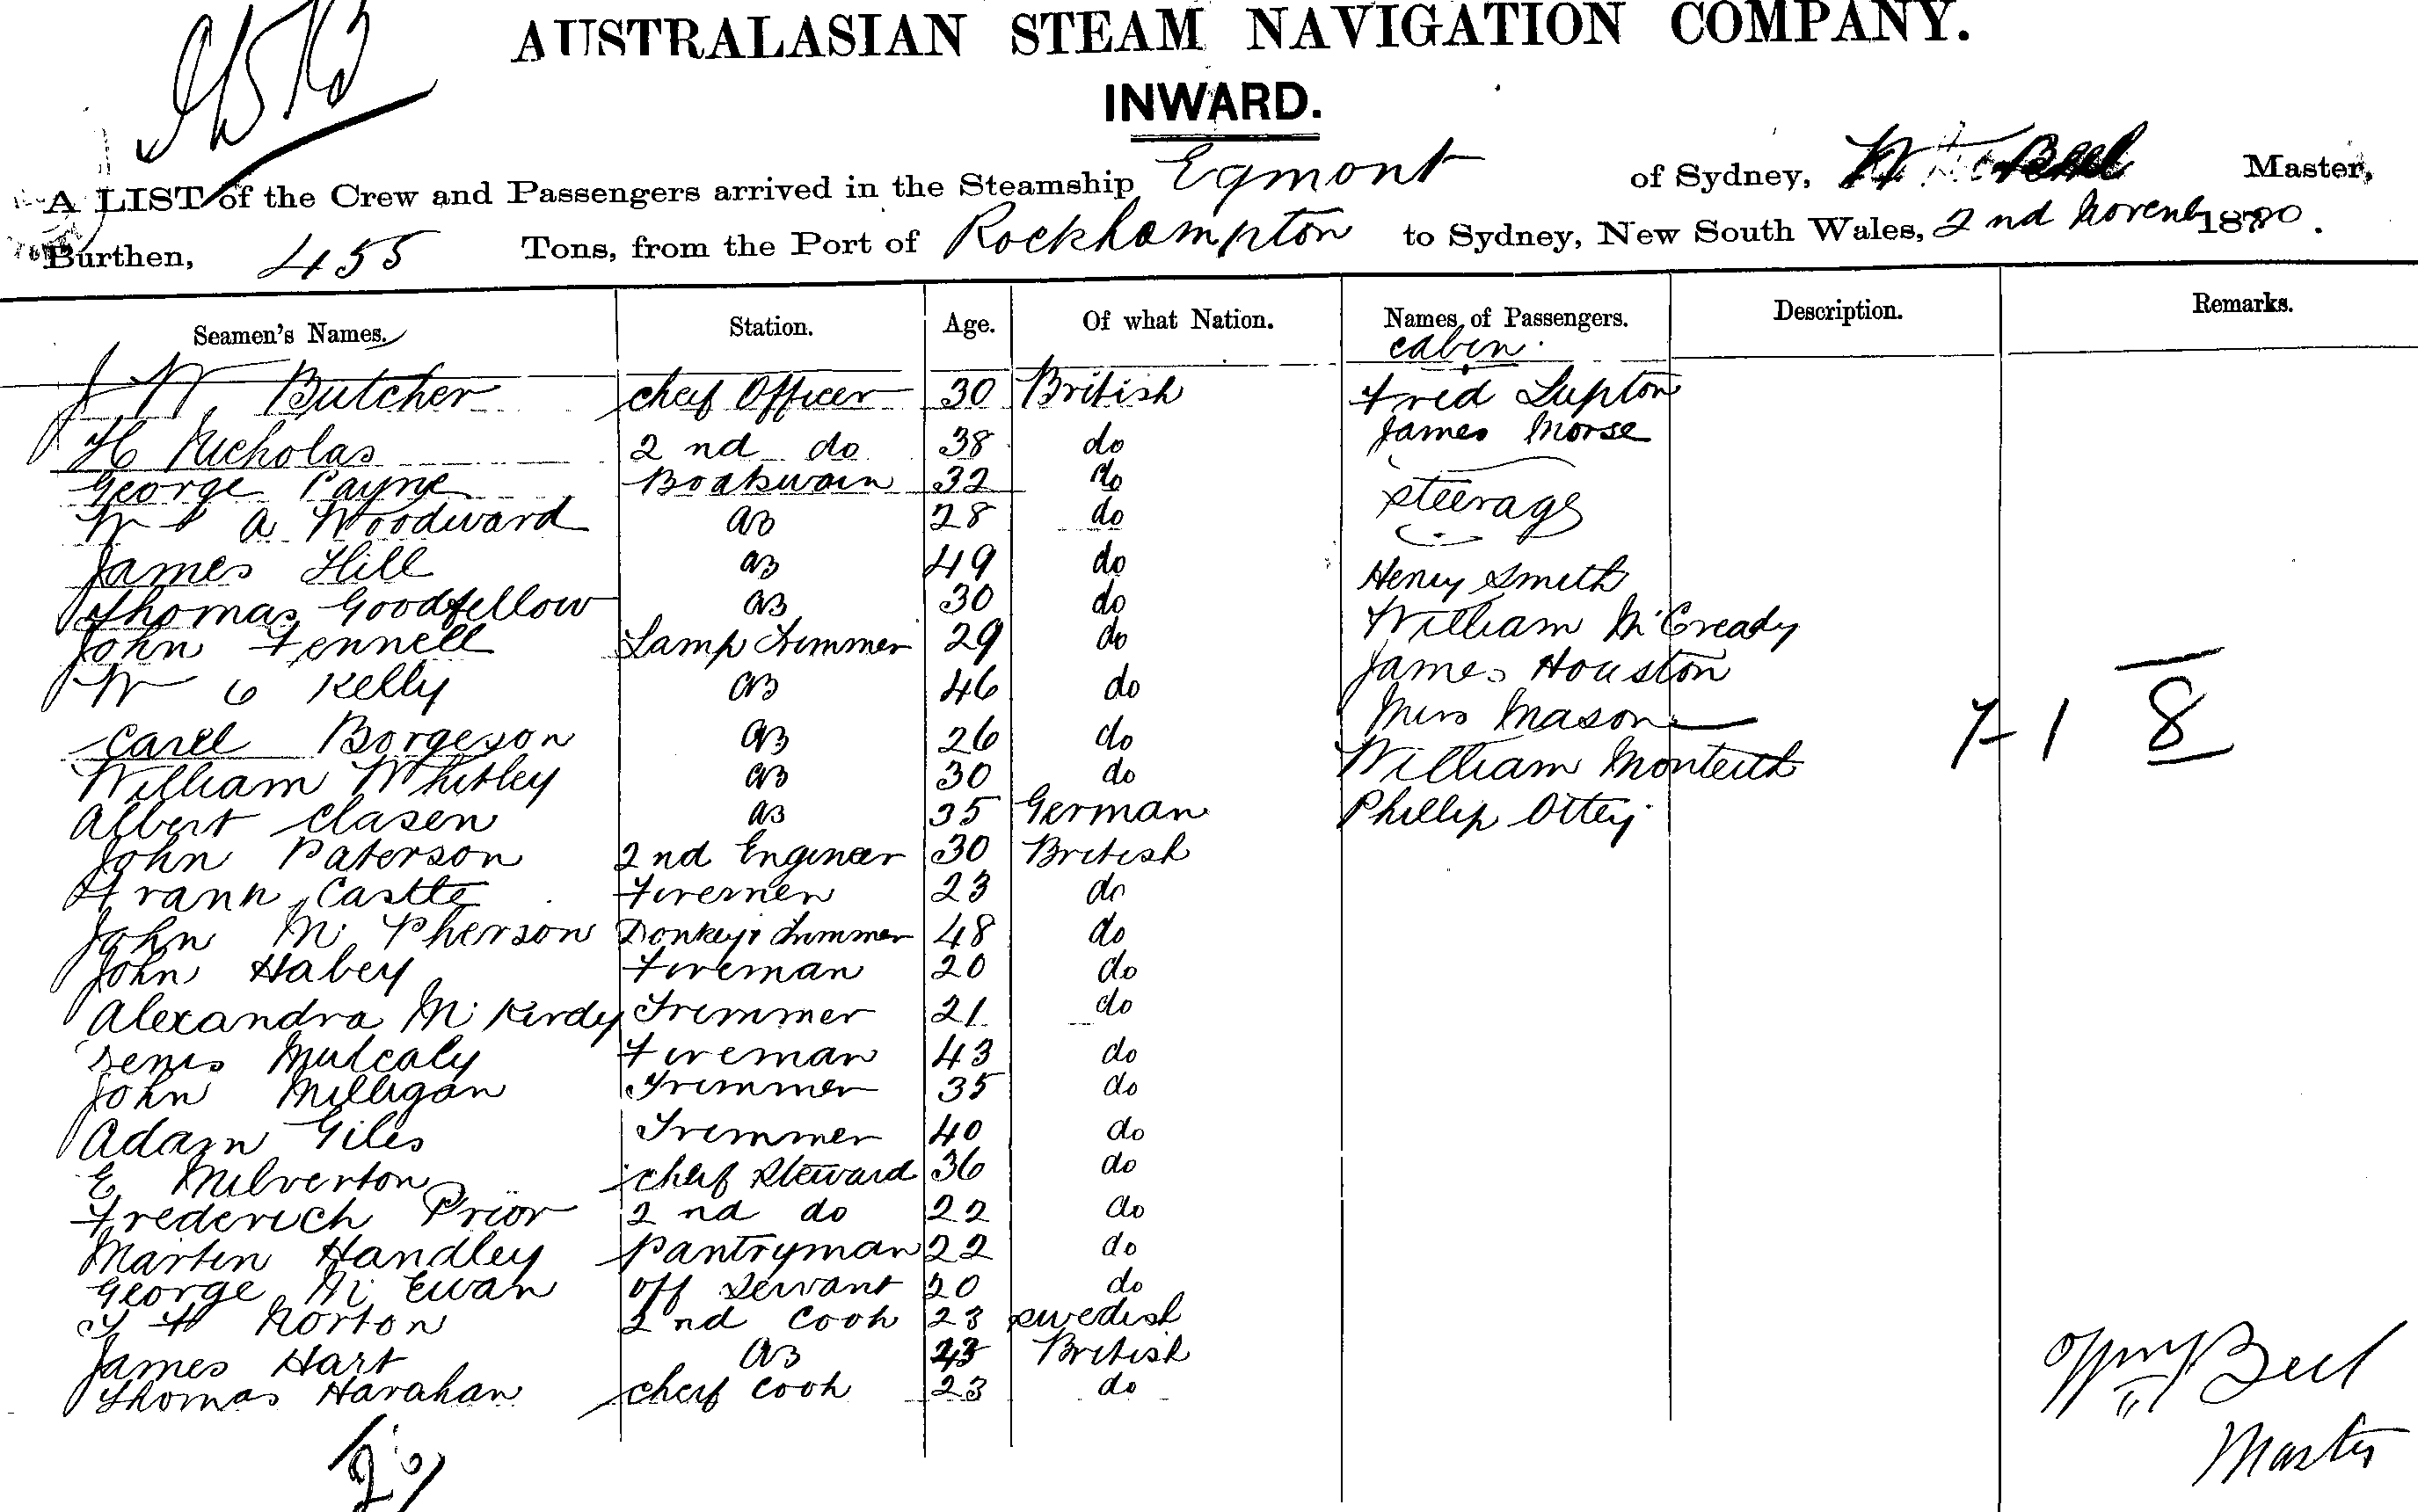 AUSTRALASIAN STEAM NAVIGATION COMPANY.
INWARD.
A LIST of the Crew and Passengers arrived in the Steamship Egmont of Sydney, W Beel Master,
Burthen, 455 Tons, from the Port of Rockhampton to Sydney, New South Wales, 2nd Novemb 1880.
Seamen's Names. Station. Age. Of what Nation. Names of Passengers. Description. Remarks.
cabin.
J W Butcher cheif Officer 30 British Fred Lupton
H Nicholas 2nd do 38 do James Morse
George Payne Boatswain 32 do
steerage
W A Woodward AB 28 do
James Hill AB 49 do Henry Smith
Thomas Goodfellow AB 30 do William McCready
John Fennell Lamp Trimmer 29 do James Houston
W C Kelly AB 46 do Miss Mason 7-1 8
Carel Borgeson AB 26 do William Monteith
William Whitley AB 30 do Phillip Ottey
Albert Clasen AB 35 German
John Paterson 2nd Engineer 30 British
Frank Castle Firemen 23 do
John Mc Pherson Donkey & Trimmer 48 do
John Habey Fireman 20 do
Alexandra Mc Kirdy Trimmer 21 do
Denis Mulcaly Fireman 43 do
John Milligan Trimmer 35 do
Adam Giles Trimmer 40 do
E Milverton cheif Steward 36 do
Frederich Prior 2nd do 22 do
Martin Handley Pantryman 22 do
George Mc Ewan Off Servant 20 do
T F Norton 2nd Cook 23 Swedish
James Hart AB 23 British
Thomas Harahan cheif Cook 23 do
Wm Beel
Master